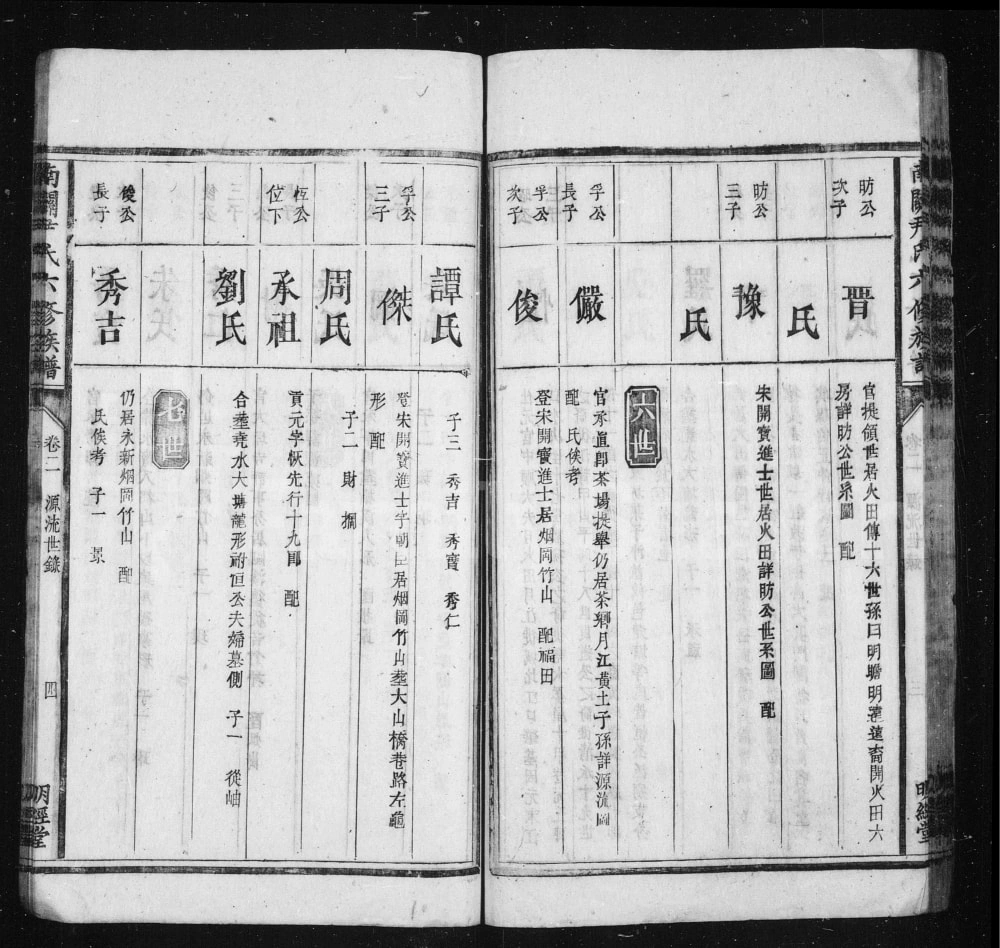 昉公次子
晋
官提領世居火田傳十六世孫曰明瞻明達遠裔開火田六
房詳昉公世系圖　配
氏
昉公三子
豫
宋開寶進士世居火田詳昉公世系圖　配
氏
六世
孚公長子
儼
官承直郎茶場提舉仍居茶鄉月江黃土子孫詳源流圖
配　氏俟考
孚公次子
俊
登宋開寶進士居烟岡竹山　配福田
譚氏
子三　秀吉　秀寶　秀仁
孚公三子
傑
登宋開寶進士字朝臣居烟岡竹山塟大山橋巷路左龜
形　配
周氏
子二　財　攔
恆公位下
承祖
貢元字恢先行十九郎　配
劉氏
合塟堯水大塘龍形祔恒公夫婦墓側　子一　從岫
七世
俊公長子
秀吉
仍居永新烟岡竹山　配
氏俟考　子一　景
南關尹氏六修族譜
卷二　源流世錄
四
明經堂